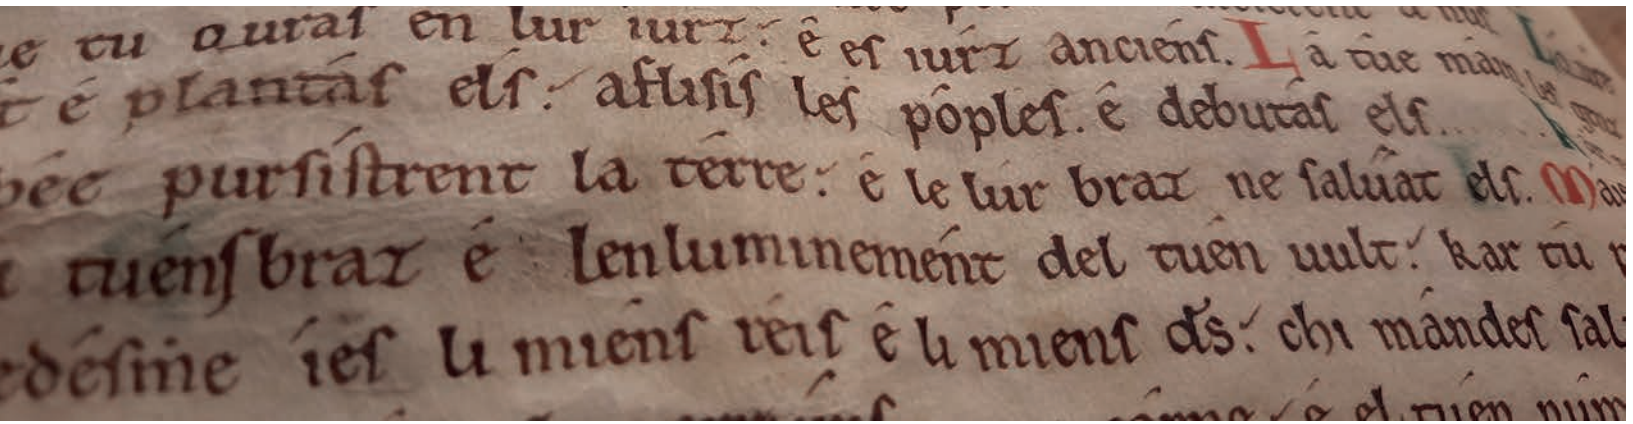 tu ouras en lur iurz: é es iúrz anciens. La tue main
é plantás els: aflisis les póples. é debutás els
pursistrent la térre: é le lur braz ne saluât els. Mais
tuéns braz é lenluminemént del tuén uult: kar tú
iés li miens réis é li miens ds: chi mándes
é el tuén